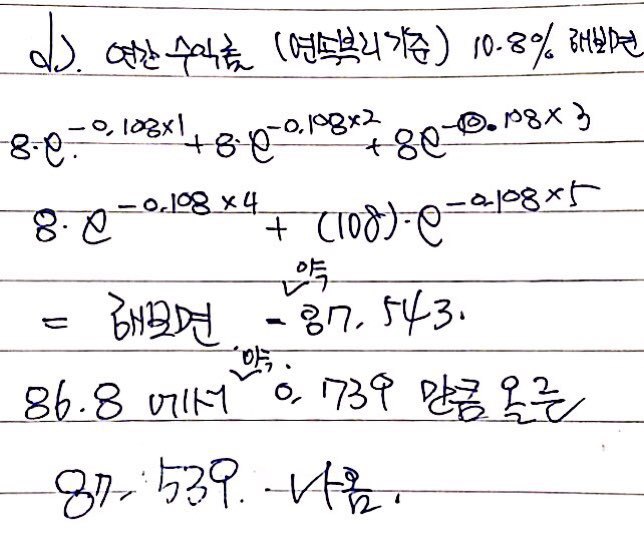 d). 연간 수익률 (연속복리기준) 10.8% 해보면
8·e^-0.108×1 + 8·e^-0.108×2 + 8e^-0.108×3
8·e^-0.108×4 + (108)·e^-0.108×5
= 해보면 약 - 87.543.
86.8 에서 약 0.739 만큼 오른
87.539. 나옴.